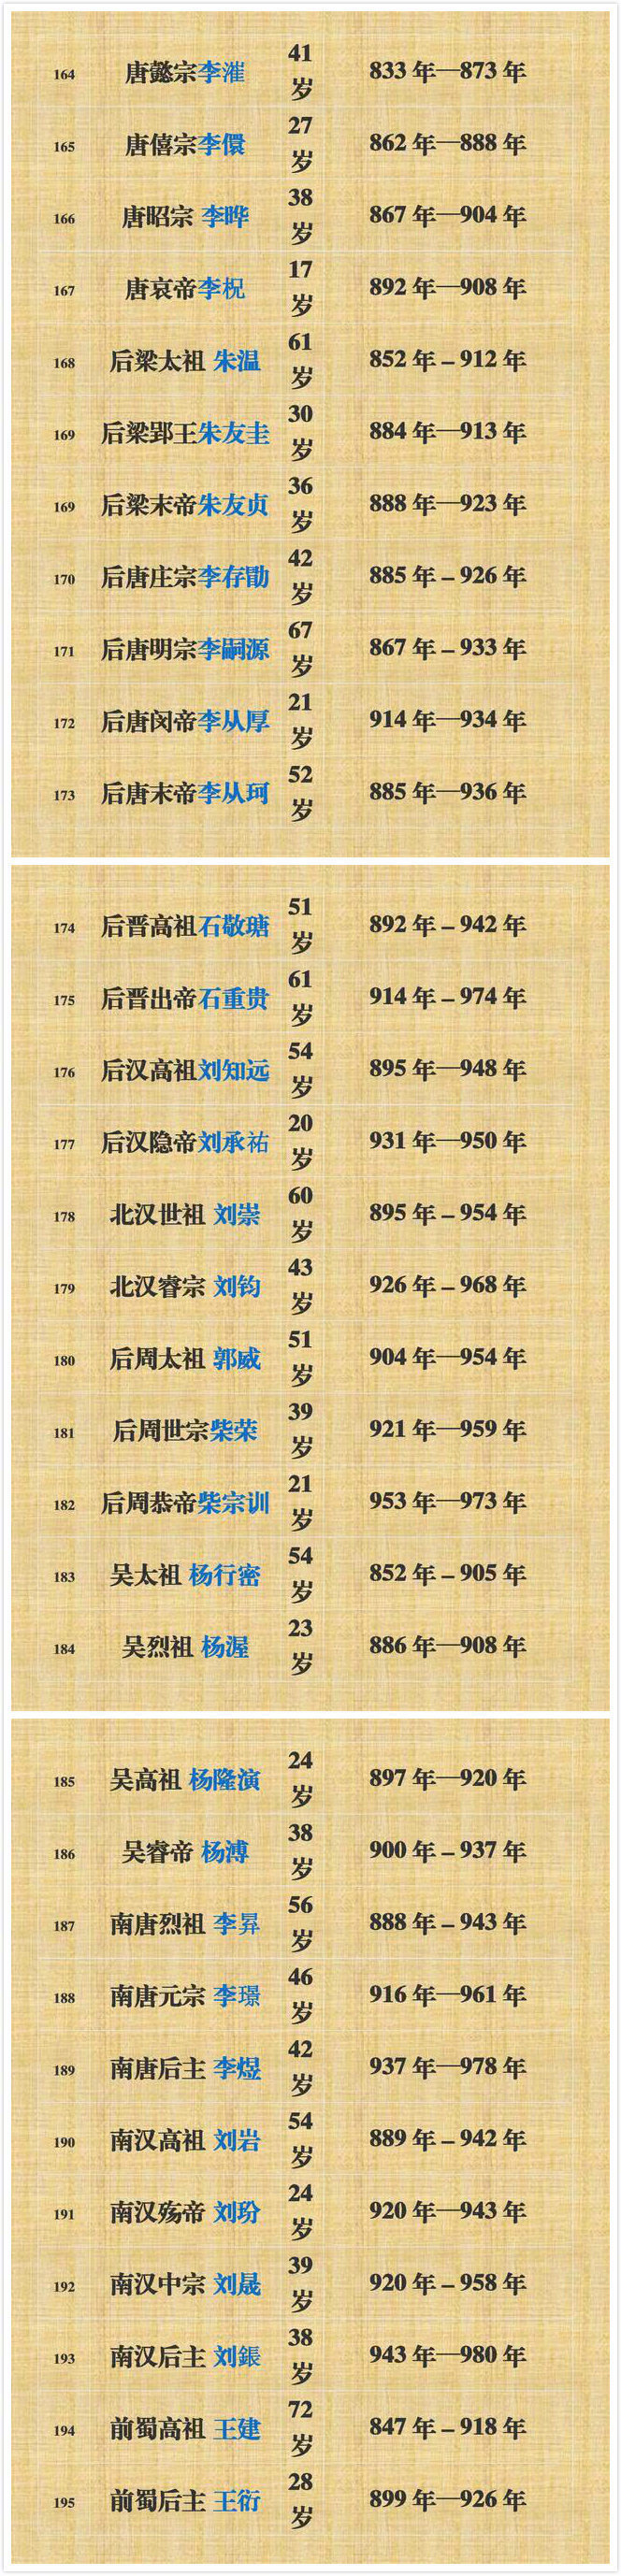 164 唐懿宗李漼 41岁 833 年—873 年
165 唐僖宗李儇 27岁 862 年—888 年
166 唐昭宗 李晔 38岁 867 年—904 年
167 唐哀帝李柷 17岁 892 年—908 年
168 后梁太祖 朱温 61岁 852 年 – 912 年
169 后梁郢王朱友圭 30岁 884 年—913 年
169 后梁末帝朱友贞 36岁 888 年—923 年
170 后唐庄宗李存勖 42岁 885 年 – 926 年
171 后唐明宗李嗣源 67岁 867 年 – 933 年
172 后唐闵帝李从厚 21岁 914 年—934 年
173 后唐末帝李从珂 52岁 885 年—936 年
174 后晋高祖石敬瑭 51岁 892 年 – 942 年
175 后晋出帝石重贵 61岁 914 年 – 974 年
176 后汉高祖刘知远 54岁 895 年—948 年
177 后汉隐帝刘承祐 20岁 931 年—950 年
178 北汉世祖 刘崇 60岁 895 年 – 954 年
179 北汉睿宗 刘钧 43岁 926 年 – 968 年
180 后周太祖 郭威 51岁 904 年—954 年
181 后周世宗柴荣 39岁 921 年—959 年
182 后周恭帝柴宗训 21岁 953 年—973 年
183 吴太祖 杨行密 54岁 852 年 – 905 年
184 吴烈祖 杨渥 23岁 886 年—908 年
185 吴高祖 杨隆演 24岁 897 年—920 年
186 吴睿帝 杨溥 38岁 900 年 – 937 年
187 南唐烈祖 李昪 56岁 888 年 – 943 年
188 南唐元宗 李璟 46岁 916 年—961 年
189 南唐后主 李煜 42岁 937 年—978 年
190 南汉高祖 刘岩 54岁 889 年 – 942 年
191 南汉殇帝 刘玢 24岁 920 年—943 年
192 南汉中宗 刘晟 39岁 920 年 – 958 年
193 南汉后主 刘鋹 38岁 943 年—980 年
194 前蜀高祖 王建 72岁 847 年 – 918 年
195 前蜀后主 王衍 28岁 899 年—926 年